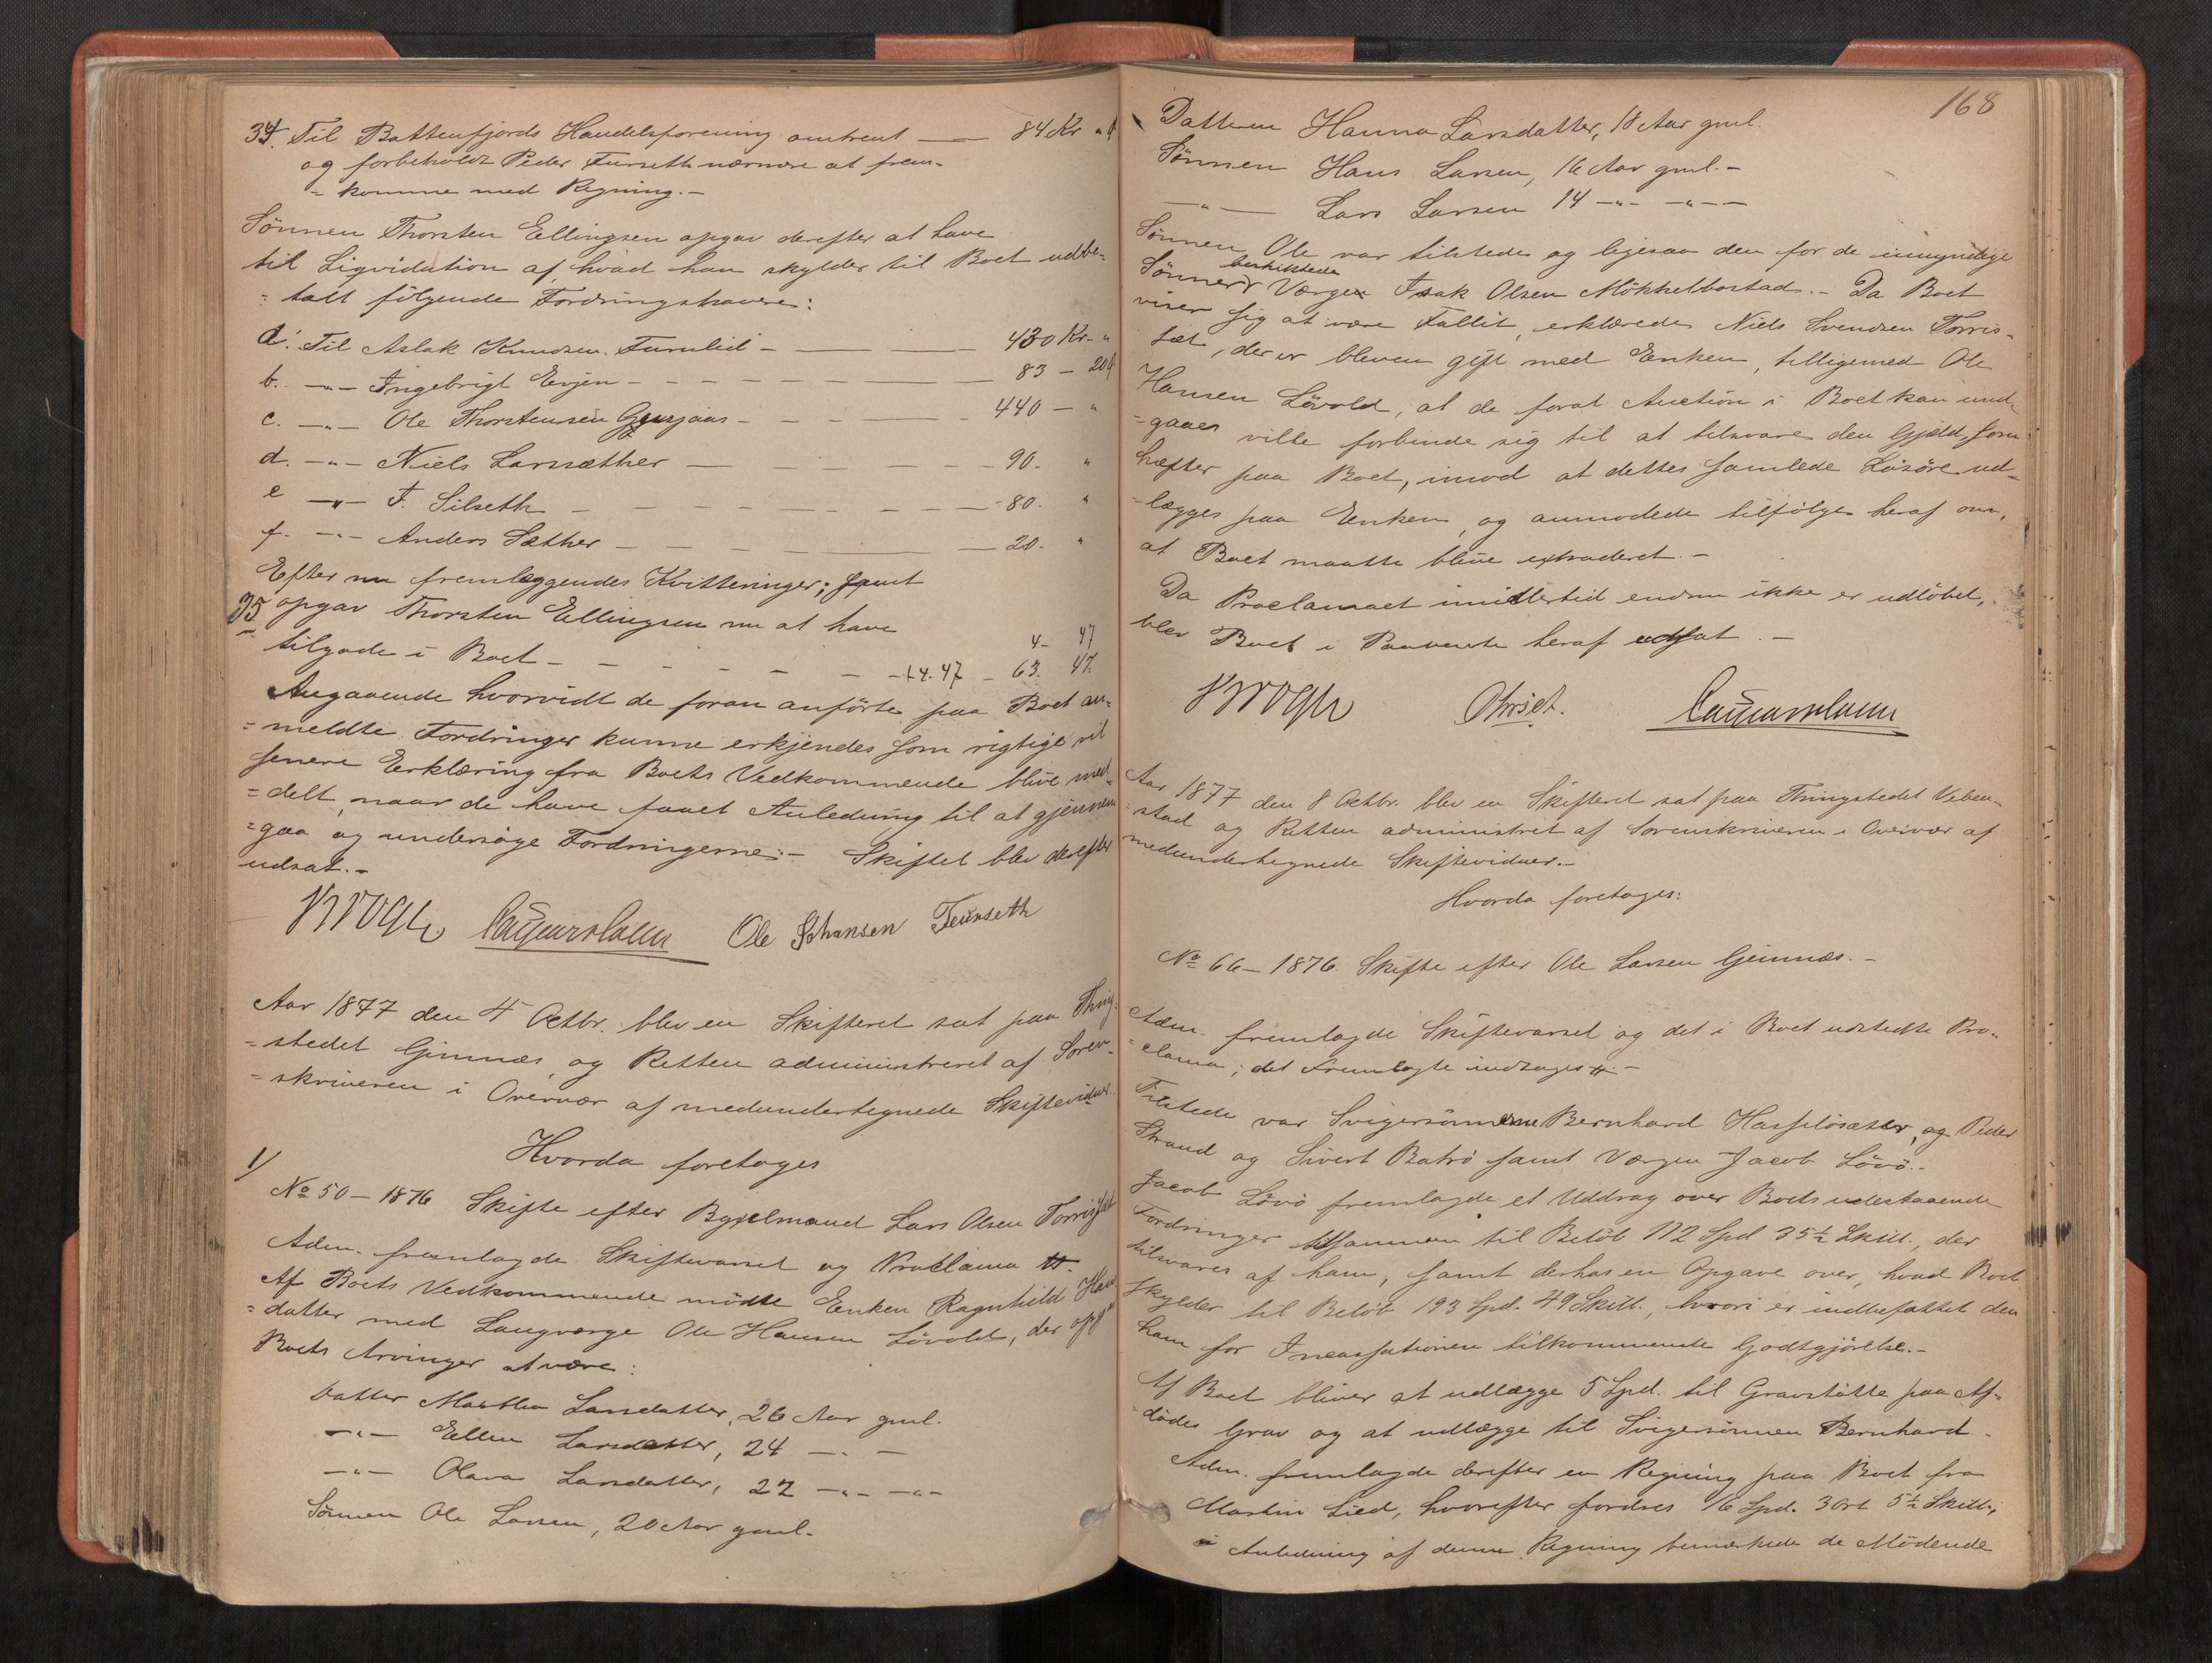 34. Til Battenfjords Handelsforening omtrent — 84 Kr "
og forbeholdt Peder Furseth nærmere at frem-
= komme med Regning.-
Sönnen Thorsten Ellingsen opgav derefter at have
til Liqvidation af hvad han skylder til Boet udbe-
= talt fölgende Fordringshavere:
a. Til Aslak Knudsen Furulid - — — — 430 Kr - "
b. -"- Ingebrigt Evjen - - - - - — — — 83 - 20
c. -"- Ole Thorstensen - — - — — 440 - "
d. -"- Niels Larssæther — — - - - - 90. "
e -"- F. Silseth - - - - - - - 80. "
f. -"- Anders Sæther - - - — — 20. "
Efter nu fremlæggendes Kvitteringer; samt
35 opgav Thorsten Ellingsen nu at have
4- 47
tilgode i Boet - - - - - - - 14.47 - 63. 47.
Angaaende hvorvidt de foran anförte paa Boet an-
= meldte Fordringer kunne erkjendes som rigtige vil
senere Erklæring fra Boets Vedkommende blive med-
= delt, naar de have faaet Anledning til at gjennem
= gaa og undersöge Fordringerne:- Skiftet blev derefter
udsat.-
Krogh Ole Johansen Feurseth
Aar 1877 den 4 Octbr. blev en Skifteret sat paa Thing-
= stedet Gimnæs, og Retten administreret af Soren-
= skriveren i Overvær af medundertegnede Skiftevidner.
Hvorda foretoges
1/
No 50 - 1876 Skifte efter Bygselmand Lars Olsen Torrisæt
Adm. fremlagde Skiftevarsel og Proclama #.
Af Boets Vedkommende mödte Enken Ragnhild Hans
= datter med Laugværge Ole Hansen Lövold, der opgav
Boets Arvinger at være:
Datter Marthea Larsdatter, 26 Aar gml.
-"- Ellen Larsdatter, 24 -"- -
-"- Olava Larsdatter, 22 -"- -"-
Sönnen Ole Larsen, 20 Aar gml.
168
Datteren Hanna Larsdatter, 18 Aar gml.
Sönnen Hans Larsen, 16 Aar gml.-
—"— Lars Larsen 14 -"- -"-
Sönnen Ole var tilstede og ligesaa den for de umyndige
beskikkede
Sönner Værge Isak Olsen Mökkelbostad.- Da Boet
viser sig at være Fallit, erklærede Niels Svendsen Torris-
sæt, der er bleven gift med Enken, tilligemed Ole
Hansen Lövold, at de forat Auction i Boet kan und-
= gaaes ville forbinde sig til at tilsvare den Gjæld, som
hæfter paa Boet, imod at dettes samlede Lösöre ud-
= lægges paa Enken, og anmodede tilfölge heraf om,
at Boet maatte blive extraderet.-
Da Proclamaet imidlertid endnu ikke er udlöbet,
blev Boet i Paavente heraf udsat.-
Krogh
Aar 1877 den 8 Octbr. blev en Skifteret sat paa Thingstedet Veben-
stad og Retten administret af Sorenskriveren i Overvær af
medundertegnede Skiftevidner.-
Hvorda foretoges:
No 66 - 1876. Skifte efter Ole Larsen Geimnæs.-
Adm. fremlagde Skiftevarsel og det i Boet udstedte Pro-
= clama; det Fremlagte indtages #.-
Tilstede var Svigersönnerne Bernhard Hasselösæter, og Peder
Strand og Sivert Batnö samt Værgen Jacob Lövö.-
Jacob Lövö fremlagde et Uddrag over Boets udestaaende
Fordringer tilsammen til Belöb 112 Spd 35½ Skill., der
tilsvares af ham, samt derhos en Opgave over, hvad Boet
skylder til Belöb 193 Spd. 49 Skill., hvori er indbefattet den
ham for Incassationen tilkommende Godtgjörelse.-
Af Boet bliver at udlægge 5 Spd. til Gravstötte paa Af-
dödes Grav og at udlægge til Svigersönnen Bernhard.-
Adm. fremlagde derefter en Regning paa Boet fra
Martin Lied, hvorefter fordres 16 Spd. 3 Ort 5½ Skill.,
i Anledning af denne Regning bemærkede de Mödende